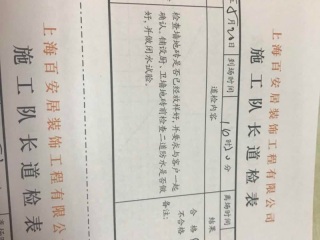 上海百安居装饰工程有限公司
施工队长巡检表
8月28日 到场时间 16时30分 离场时间
巡检内容
结果
检查墙地砖是否已经放样好,并要求与客户一起
确认,铺设厨、卫墙地砖前检查二道防水是否做
好,并做闭水试验。
合格
不合格
备注:
上海百安居装饰工程有限公
施工队长巡检表